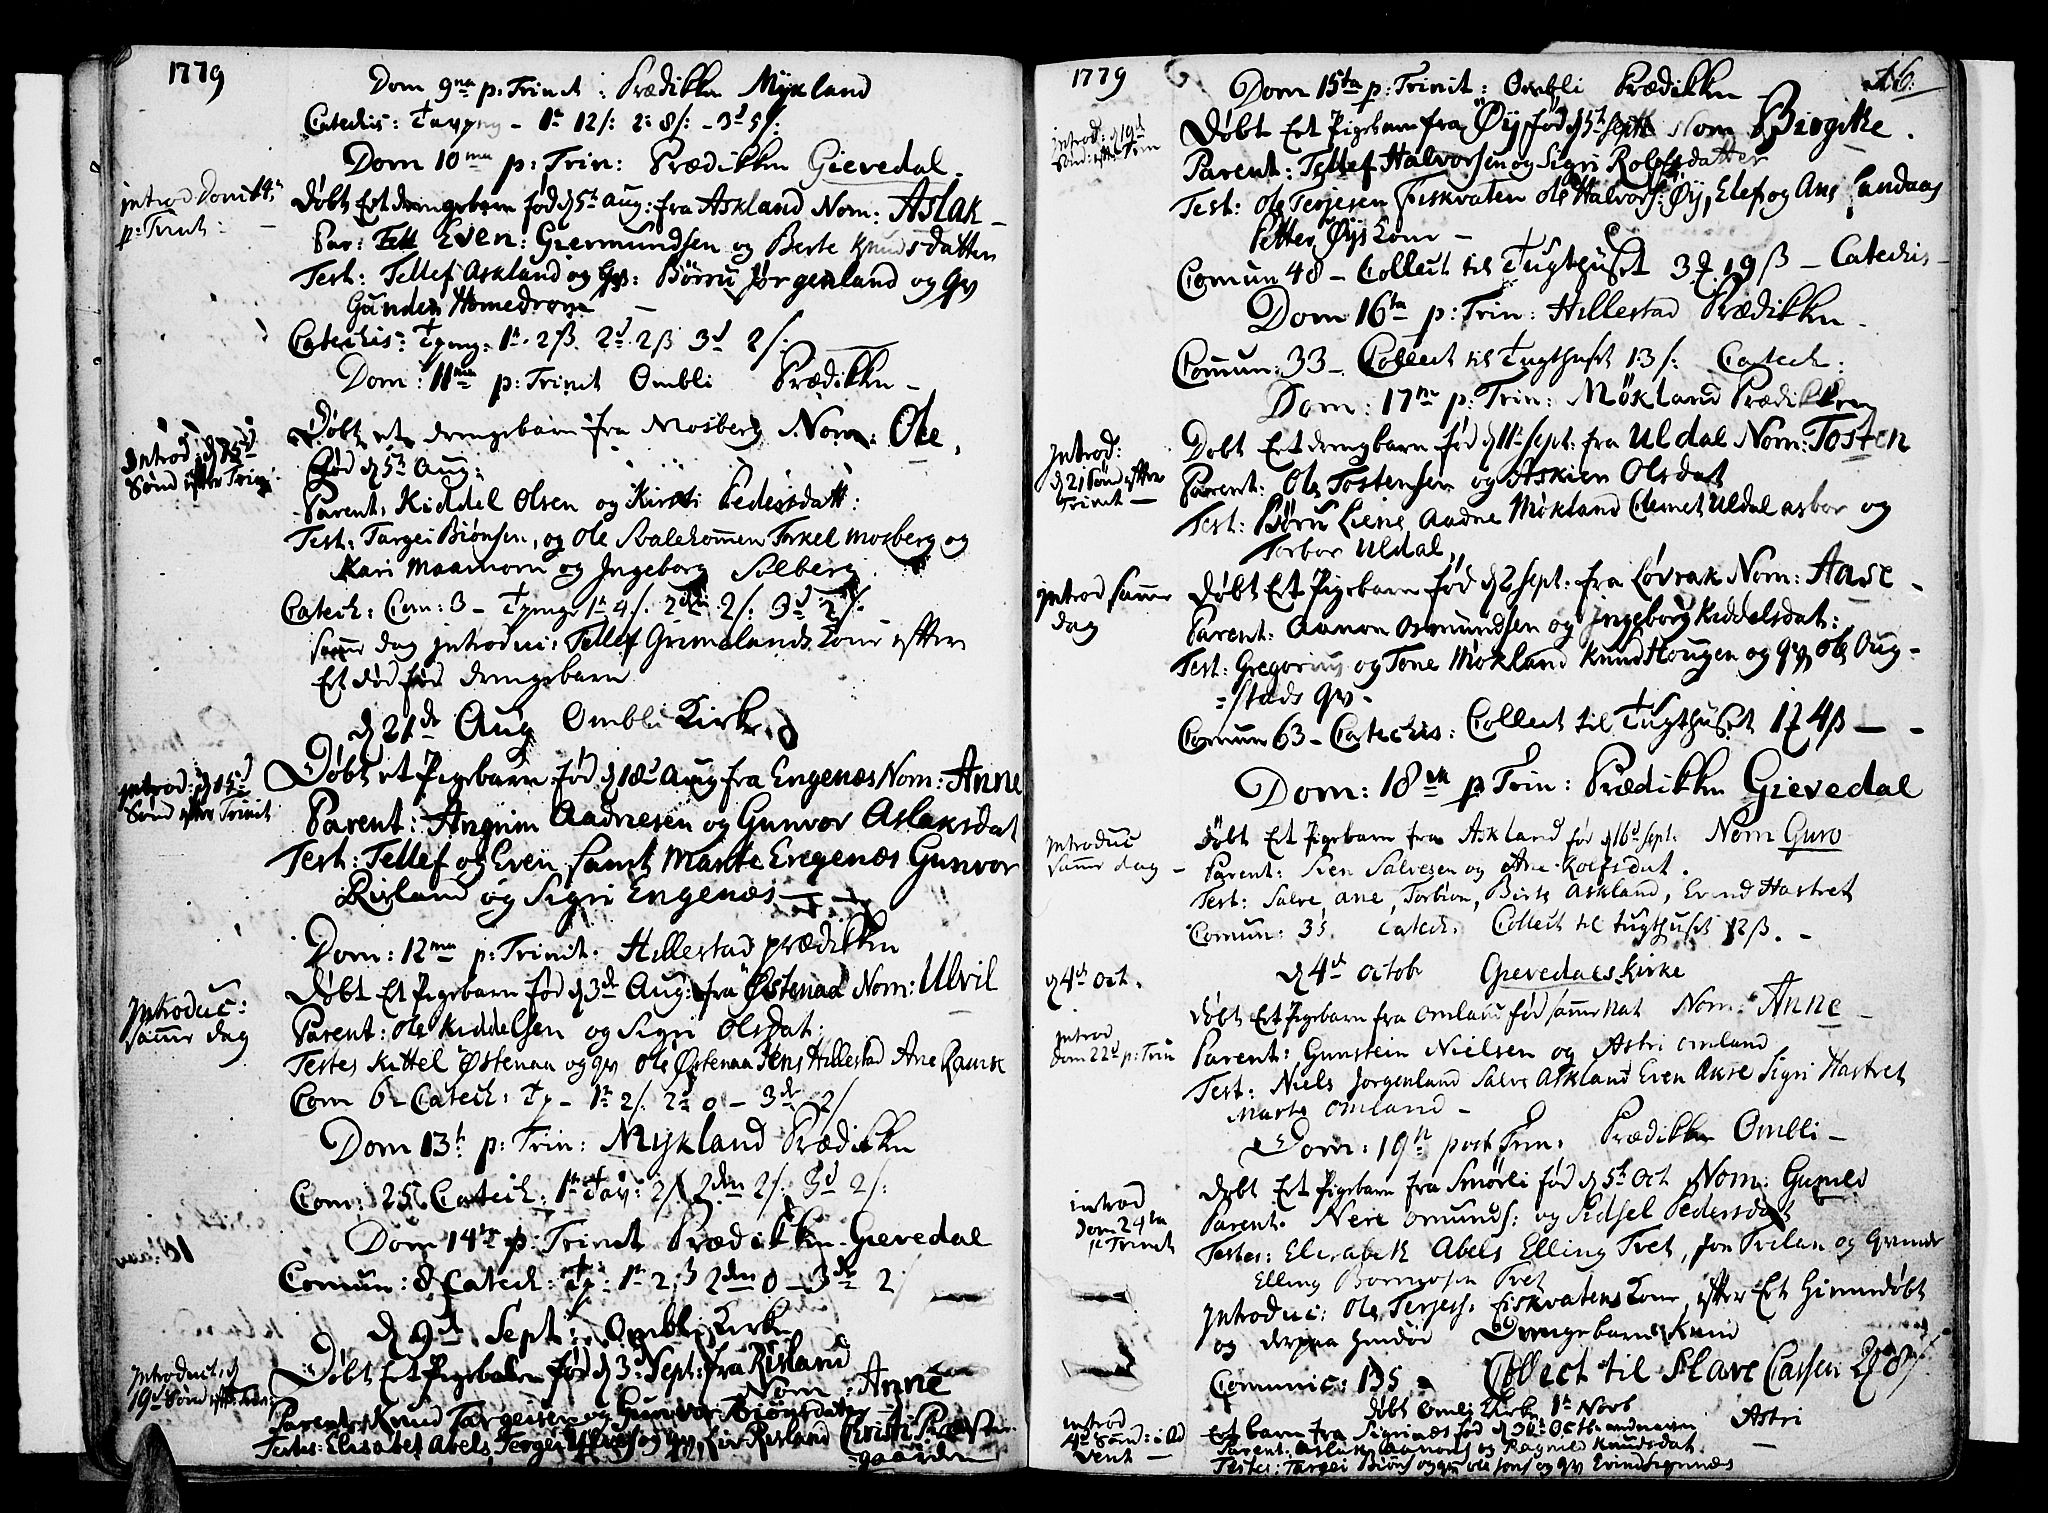 1779
Dom 9na p: Trinit: Prædikken Mykland
Catechis: Tavpeng - 1t 12 s: 2: 8 s: - 3d 5 s:
Dom 10ma p: Trin: Prædikken Gievedal.
introd Dom 14
p: Trinit:
Døbt Ert drengebarn fød d 5t Aug: fra Askland Nom: Aslak
Par: Even: Giermundsen og Berte Knudsdatter
Test: Tellef Askland og Qv: Børru Jørgenland og Qv
Gunder Homedrom
Catechis: Tpeng: 1t. 2 ß 2d. 2 ß 3d 2 s:
Dom: 11ma p: Trinit Ombli Prædikken
Introd: d 15d
Sønd efter Trin:
Døbt et drengebarn fra Mosberg Nom: Ole.
fød d 5t Aug:
Parent: Kiddel Olsen og Kirsti Pedersdatt:
Test: Targei Biønsen, og Ole Svalehommen Torkel Mosberg og
Kari Maamorn og Ingeborg Solberg
Catech: Com: 3 - Tpenge 1t 4 s. 2den 2 s: 3d 2 s:
samme dag introduc: Tellef Grimelands Kone efter
Et død fød drengebarn
d 21de Aug Ombli Kirke
introd: d 15d
Sønd efter Trinit
Døbt et Pigebarn fød d 18d Aug fra Engenæs Nom: Anne
Parent: Angrim Aadnesen og Gunvor Aslaksdat
Test: Tellef og Even samt Marte Engenæs Gunvor
Risland og Sigri Engenæs
Dom: 12ma p: Trinit. Hillestad prædikken
Introduc:
samme dag
Døbt Et Pigebarn fød d 3de Aug: fra Østenaa Nom: Ulvil
Parent: Ole Kiddelsen og Sigri Olsdat:
Testes Kittel Østenaa og qv Ole Østenaa Jens Hillestad Ane
Com 6 - Catech: Tp - 1t 2 s: 2d 0 - 3de 2 s
Dom 13t p: Trin: Mykland Prædikken
Com: 25 Catech: 1t Tav: 2 s 2den 2 s: 3d 2 s:
Dom 14de p: Trinit Prædikken Gievedal
Comun: 8 Catech: Tp: 1t 2 ß 2den 0 - 3de 2
d 9de Sept: Ombli Kirke
Introduct: d
19d Sønd efter Trin:
Døbt Ert Pigebarn fød d 3: Sept: fra Risland
Nom: Anne
Parent: Knud Targeisen og Gunvor Biønsdatter
Testes: Elisabet Abels, Tergei og qv, Siv Risland Christi Præste
gaarden
1779
16.
Dom 15ta p: Trinit: Ombli Prædikken
introd: d 19d
Sønd: efter Trin
Døbt Ert Pigebarn fra Øy fød d 5t Sept Nom Birgitte.
Parent: Tellef Halvorsen og Sigri Rolfsdatter
Test: Ole Terjesen Fiskvaten Ole Halvors: Øy, Elef og Ane Landaas
Petter Øys Kone -
Comun 48 - Collect til Tugthuset 3 19 ß - Catechis -
Dom 16ta p: Trin: Hillestad Prædikken
Comun: 33 - Collect til Tugthuset 13 s: Catech:
Dom: 17ma p: Trin: Mökland Prædikken
Introd:
d 21 Sønd efter
Trinit -
Døbt Ert drengbarn fød d 11t Sept: fra Uldal Nom: Tosten
Parent: Ole Tostensen og Askien Olsdat
Test: Børu Liene Aadne Møkland Clemet Uldal Asbor og
Torbor Uldal,
introd samme
dag
Døbt Et Pigebarn fød d 2 Sept: fra Løvrak Nom: Aase
Parent: Aanon Osmundsen og Ingeborg Kiddelsdat:
Test: Gregorius og Tone Møkland Knud Hougen og qv, Ole Aug-
=stads qv -
Comun 63 - Catechis: Collect til Tugthuset 1 4 ß -
Dom: 18de p Trin: Prædikken Gievedal
Introduc
samme dag -
Døbt Ert Pigebarn fra Askland fød d 16d Sept: Nom Guro
Parent: Sven Salvesen og Ane Rolfsdat.
Test: Salve, Ane, Torbion, Birte Askland, Evind Hastvet
Comun: 35. Catech. Collect til Tugthuset 12 ß. -
d 4de Oct.
d 4de Octob Gievedals Kirke
Døbt Ert Pigebarn fra Omland fød samme Nat Nom: Anne
introd
Dom 22d p: Trin
Parent: Gunstein Nielsen og Astri Omland
Test: Niels Jorgenland Salve Askland Even Aase Sigri Hastvet
Marte Omland -
Dom: 19de post Trin: Prædikken Ombli -
introd
Dom 24ta
p Trinit
Døbt Ert Pigebarn fra Smørli fød d 5t Oct Nom: Guneld
Parent. Neri Omunds: og Sidsel Pedersdat
Testes: Elisabeth Abels Elling Tvet, Jon Trilan og
Elling Tvet
Introduc: Ole Terjess: Fiskvatens Kone, efter Ert Hiemmedøbt
og Drengebarn Knud
Comunic: 135 - Collect til Slave Cassen 2 8
Døbt Omli Kirke 1t Novb
introd
4de Sønd: i Ad
vent -
Ert barn fra Siginæs fød d 30t Octb Astri
Parent: Aslak Aanons og Ragnild Knudsdat.
Testes: Targei Biøns og qv Ole Jons og qv Evind Siginæs